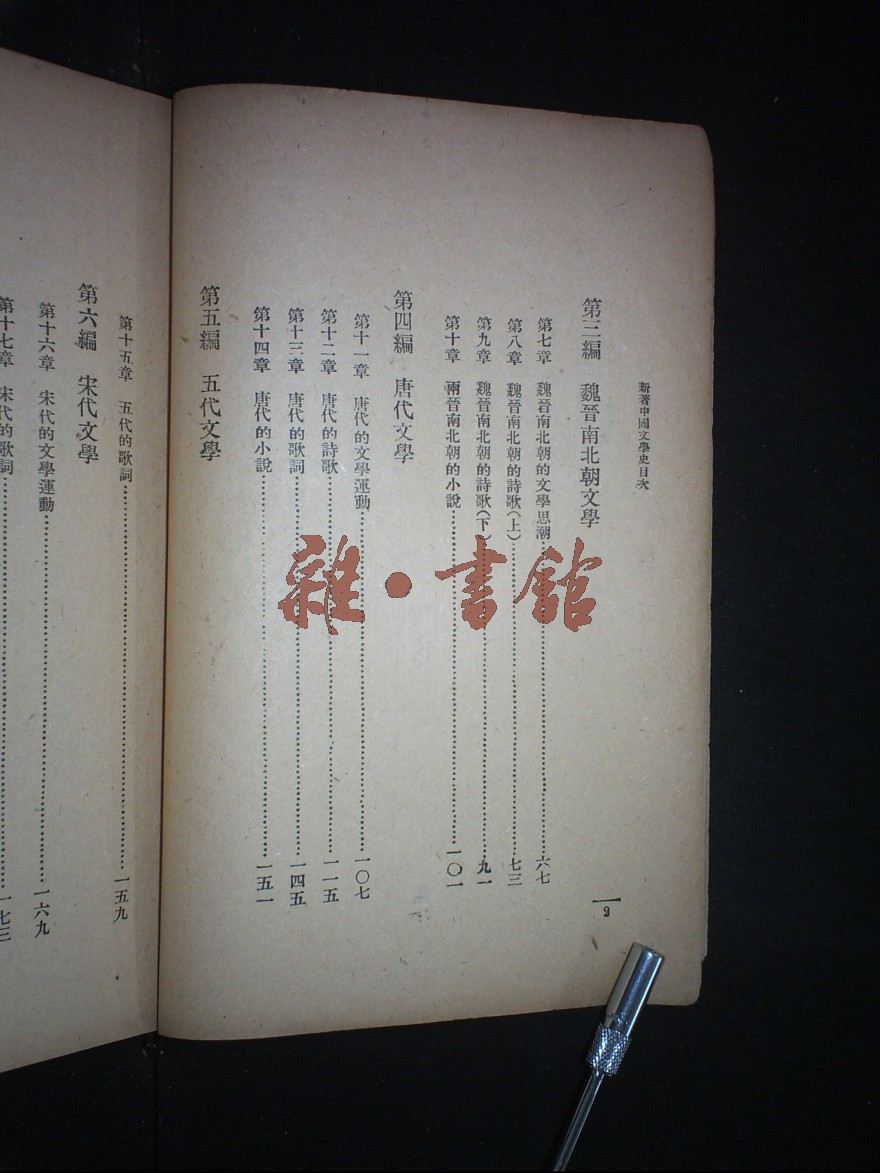 新著中國文學史目次
第三編 魏晉南北朝文學
第七章 魏晉南北朝的文學思潮……六七
第八章 魏晉南北朝的詩歌(上)……七三
第九章 魏晉南北朝的詩歌(下)……九一
第十章 兩晉南北朝的小說……一〇一
第四編 唐代文學
第十一章 唐代的文學運動……一〇七
第十二章 唐代的詩歌……一一五
第十三章 唐代的歌詞……一四五
第十四章 唐代的小說……一五一
第五編 五代文學
2
第十五章 五代的歌詞……一五九
第六編 宋代文學
第十六章 宋代的文學運動……一六九
第十七章 宋代的歌詞……一七三
雜·書館